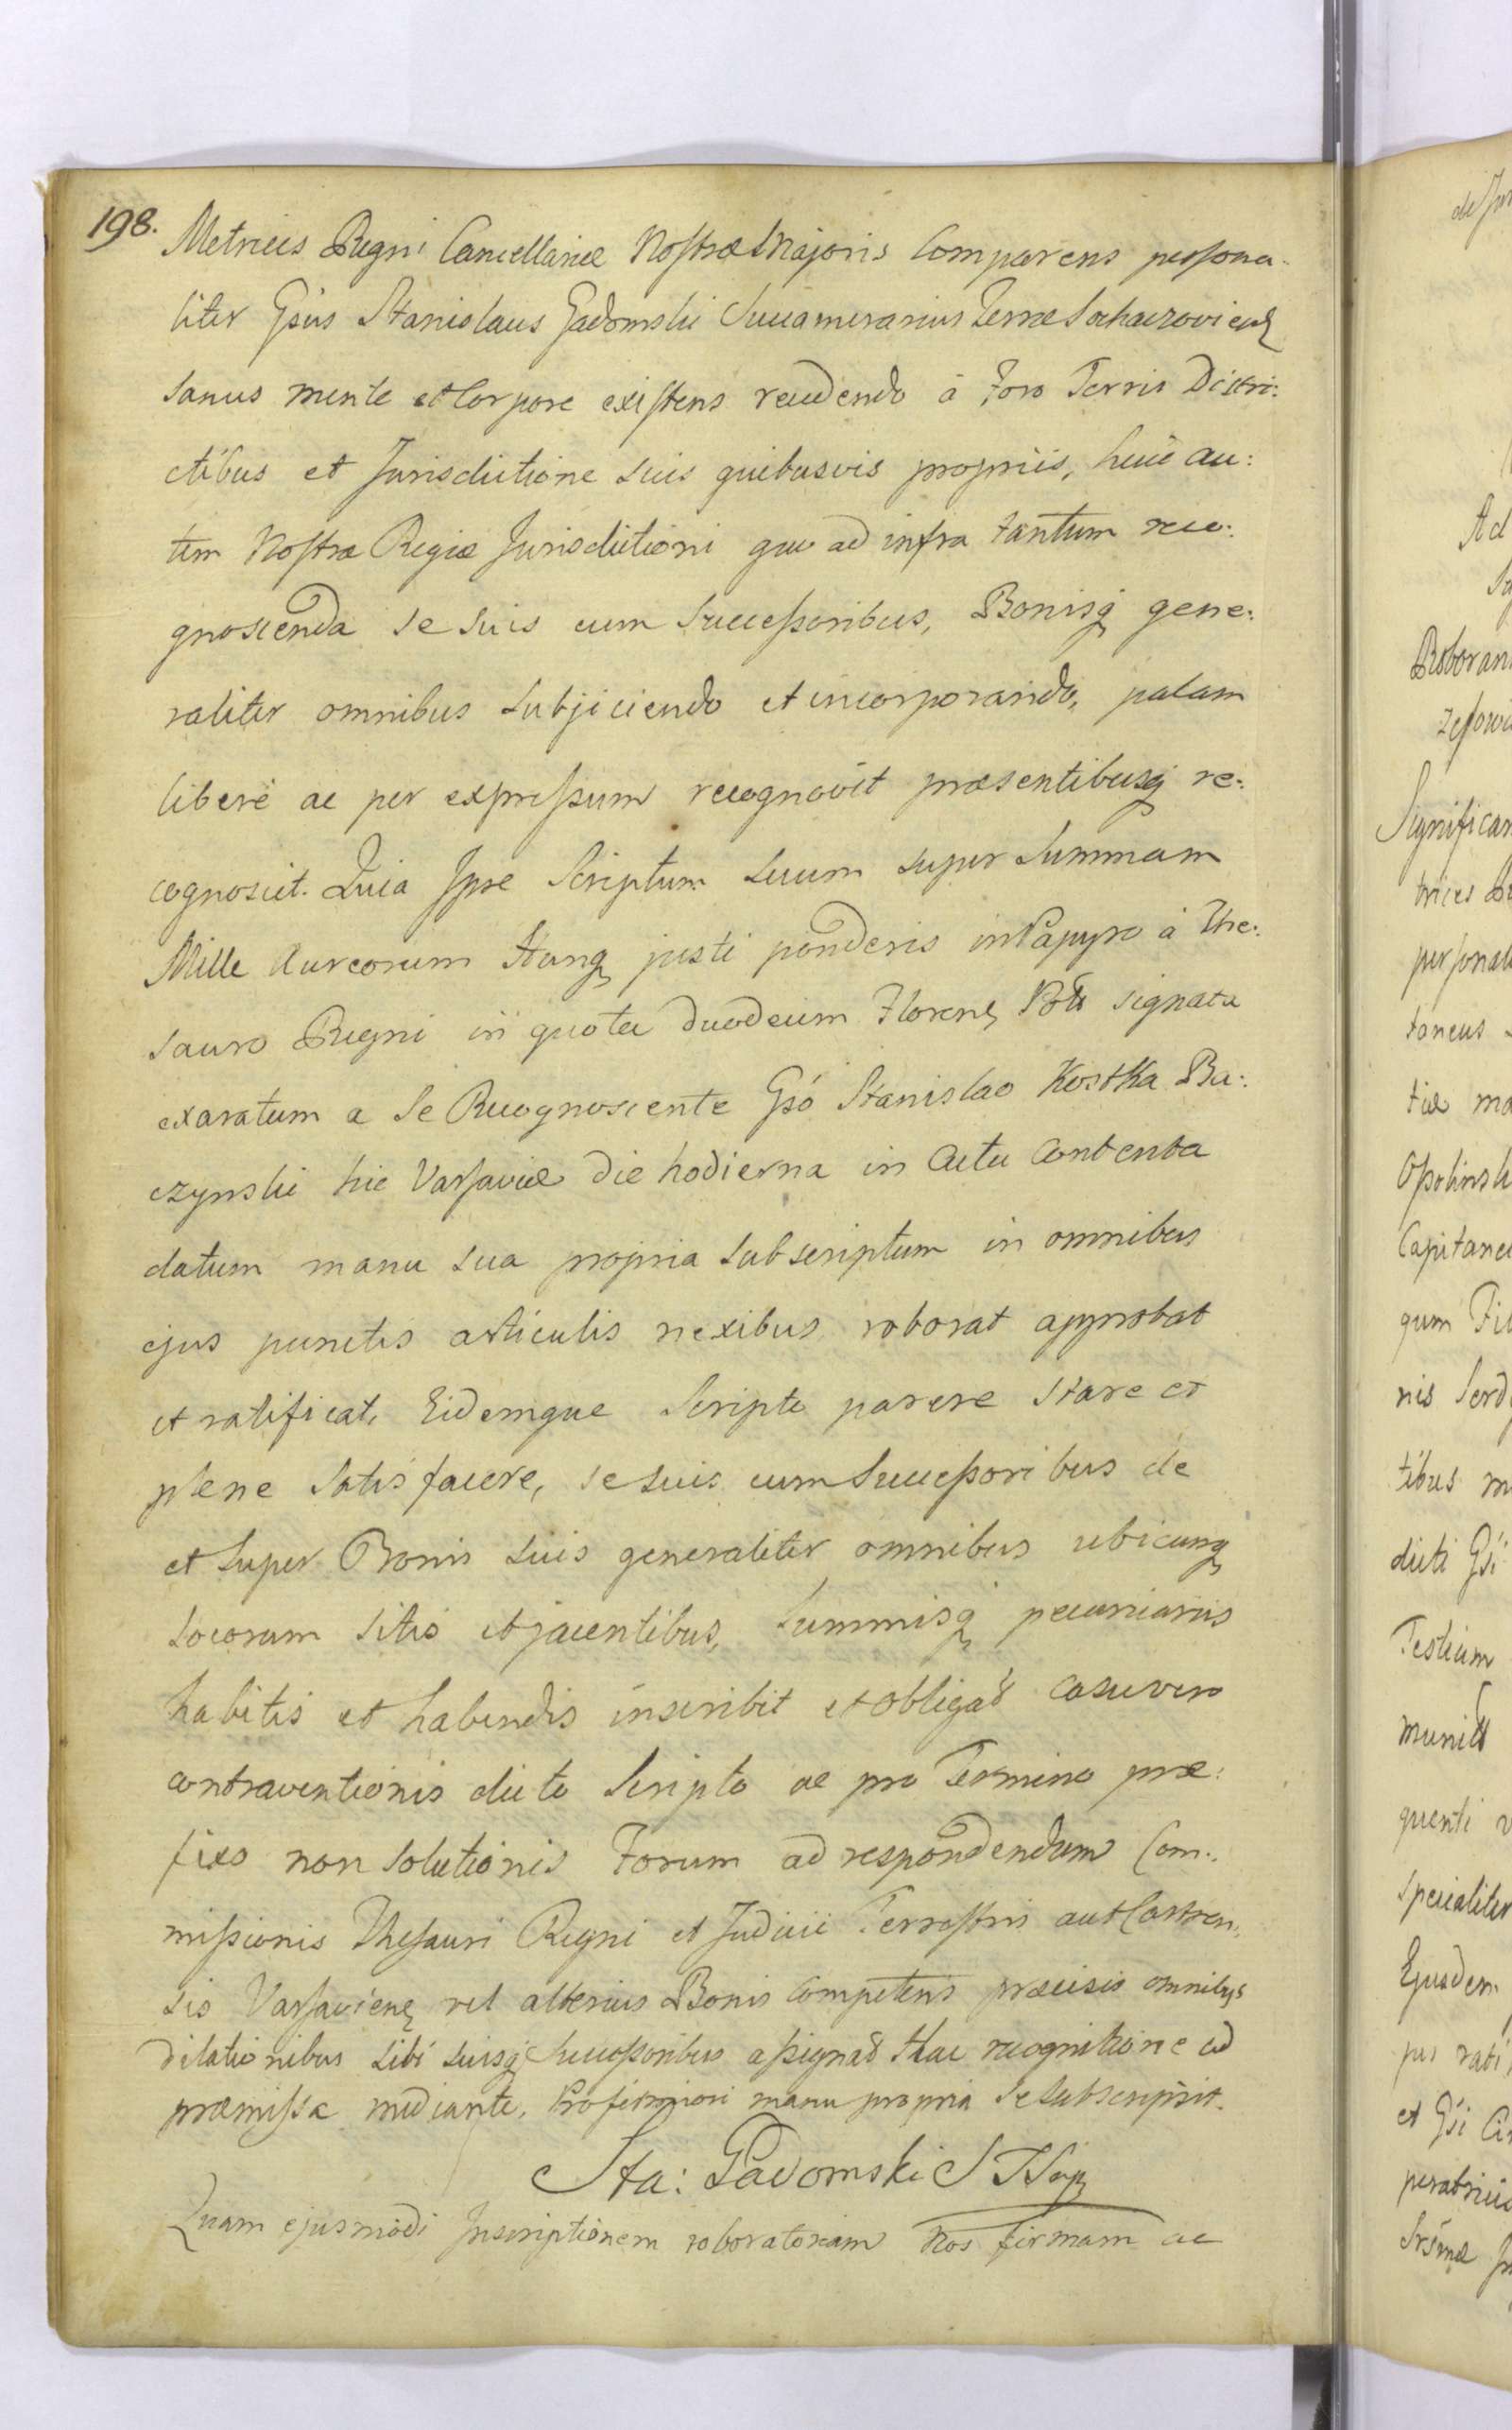 198.
Metrices Regni Cancellariæ Nostræ Majoris Comparens persona-
liter Gsus Stanislaus Gadomski Succamerarius Terræ Sochaczoviens
Sanus mente et Corpore existens recedendo â Foro Terris Distri:
ctibus et Jurisdictione suis quibusvis propriis, huic au:
tem Nostræ Regiæ Jurisdictioni quo ad infra tantum reco:
gnoscenda se suis cum Successoribus, Bonisq gene:
raliter omnibus subjiciendo et incorporando, palam
libere ac per expressum recognovit præsentibusq re:
cognoscit. Quia Ipse Scriptum suum super Summam
Mille Aureorum Hung justi ponderis in Papyro â The:
sauro Regni in quota duodecim Floren Pol signata
exaratum a se Recognoscente Gso Stanislao Kostka Ba:
czynski hic Varsaviæ die hodierna in Actu Contenta
datum manu sua propria subscriptum in omnibus
ejus punctis articulis nexibus roborat approbat
et ratificat, Eidemque Scripto parere stare et
plene satisfacere, se suis cum Successoribus de
et super Bonis suis generaliter omnibus ubicunq
locorum sitis et jacentibus, Summisq pecuniariis
habitis et habendis inscribit et obligat casu vero
contraventionis dicto Scripto ac pro Termino præ:
fixo non Solutionis Forum ad respondendum Com:
missionis Thesauri Regni et Judicii Terrestris aut Castren:
sis Varsaviens vel alterius Bonis Competens præcisis omnibus
dilationibus sibi suisq Successoribus assignat Hac recognitione ad
præmissa mediante, Pro firmiori manu propria se subscripsit.
Sta: Gadomski
Quam ejusmodi Inscriptionem roboratoriam Nos firmam ac
Ad
Significan
Capitane
Testium
specialiter
Ejusdem